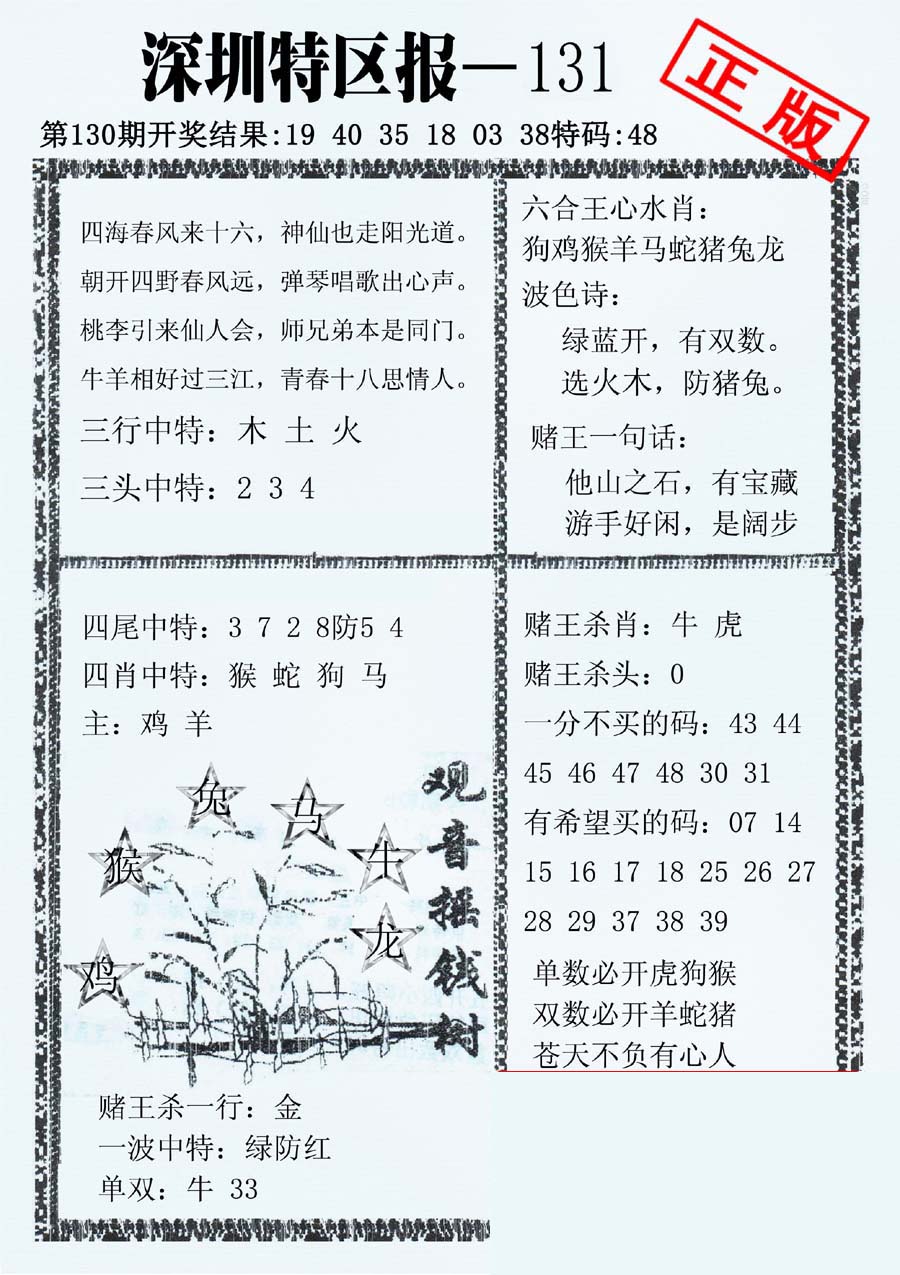 深圳特区报—131
正版
第130期开奖结果:19 40 35 18 03 38特码:48
四海春风来十六，神仙也走阳光道。
朝开四野春风远，弹琴唱歌出心声。
桃李引来仙人会，师兄弟本是同门。
牛羊相好过三江，青春十八思情人。
三行中特：木 土 火
三头中特：2 3 4
六合王心水肖：
狗鸡猴羊马蛇猪兔龙
波色诗：
绿蓝开，有双数。
选火木，防猪兔。
赌王一句话：
他山之石，有宝藏
游手好闲，是阔步
四尾中特：3 7 2 8防5 4
四肖中特：猴 蛇 狗 马
主：鸡 羊
兔
马
猴
牛
鸡
龙
观音摇钱树
赌王杀一行：金
一波中特：绿防红
单双：牛 33
赌王杀肖：牛 虎
赌王杀头：0
一分不买的码：43 44
45 46 47 48 30 31
有希望买的码：07 14
15 16 17 18 25 26 27
28 29 37 38 39
单数必开虎狗猴
双数必开羊蛇猪
苍天不负有心人